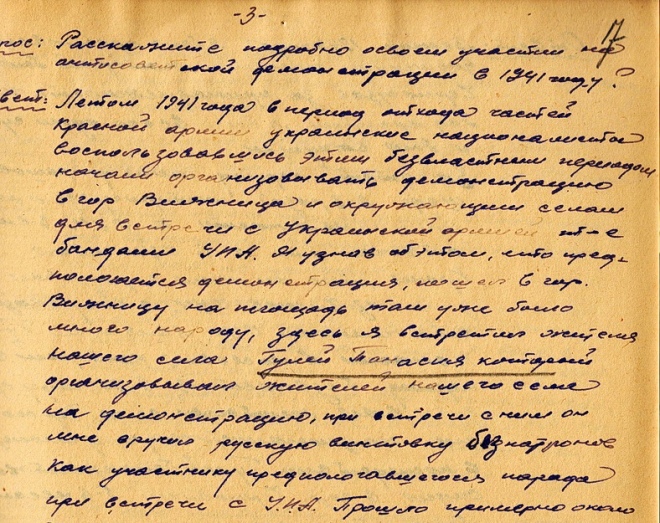 -3-
17
рос: Расскажите подробно о своем участии на
антисоветской демонстрации в 1941 году?
вет: Летом 1941 года в период отхода частей
Красной армии украинские националисты
воспользовавшись этим безвластным периодом
начали организовывать демонстрацию
в гор Вижница и окружающим селам
для встречи с Украинской армией т-е
бандами У.П.А. Я узнав об этом, что пред-
пологается демонстрация, пошел в гор.
Вижницу на площадь там уже было
много народу, здесь я встретил жителя
нашего села Гулей Танасия который
организовывал жителей нашего села
на демонстрацию, при встречи с ним он
мне вручил русскую винтовку без патронов
как участнику предпологавшегося парада
при встречи с У.П.А. Прошло примерно около